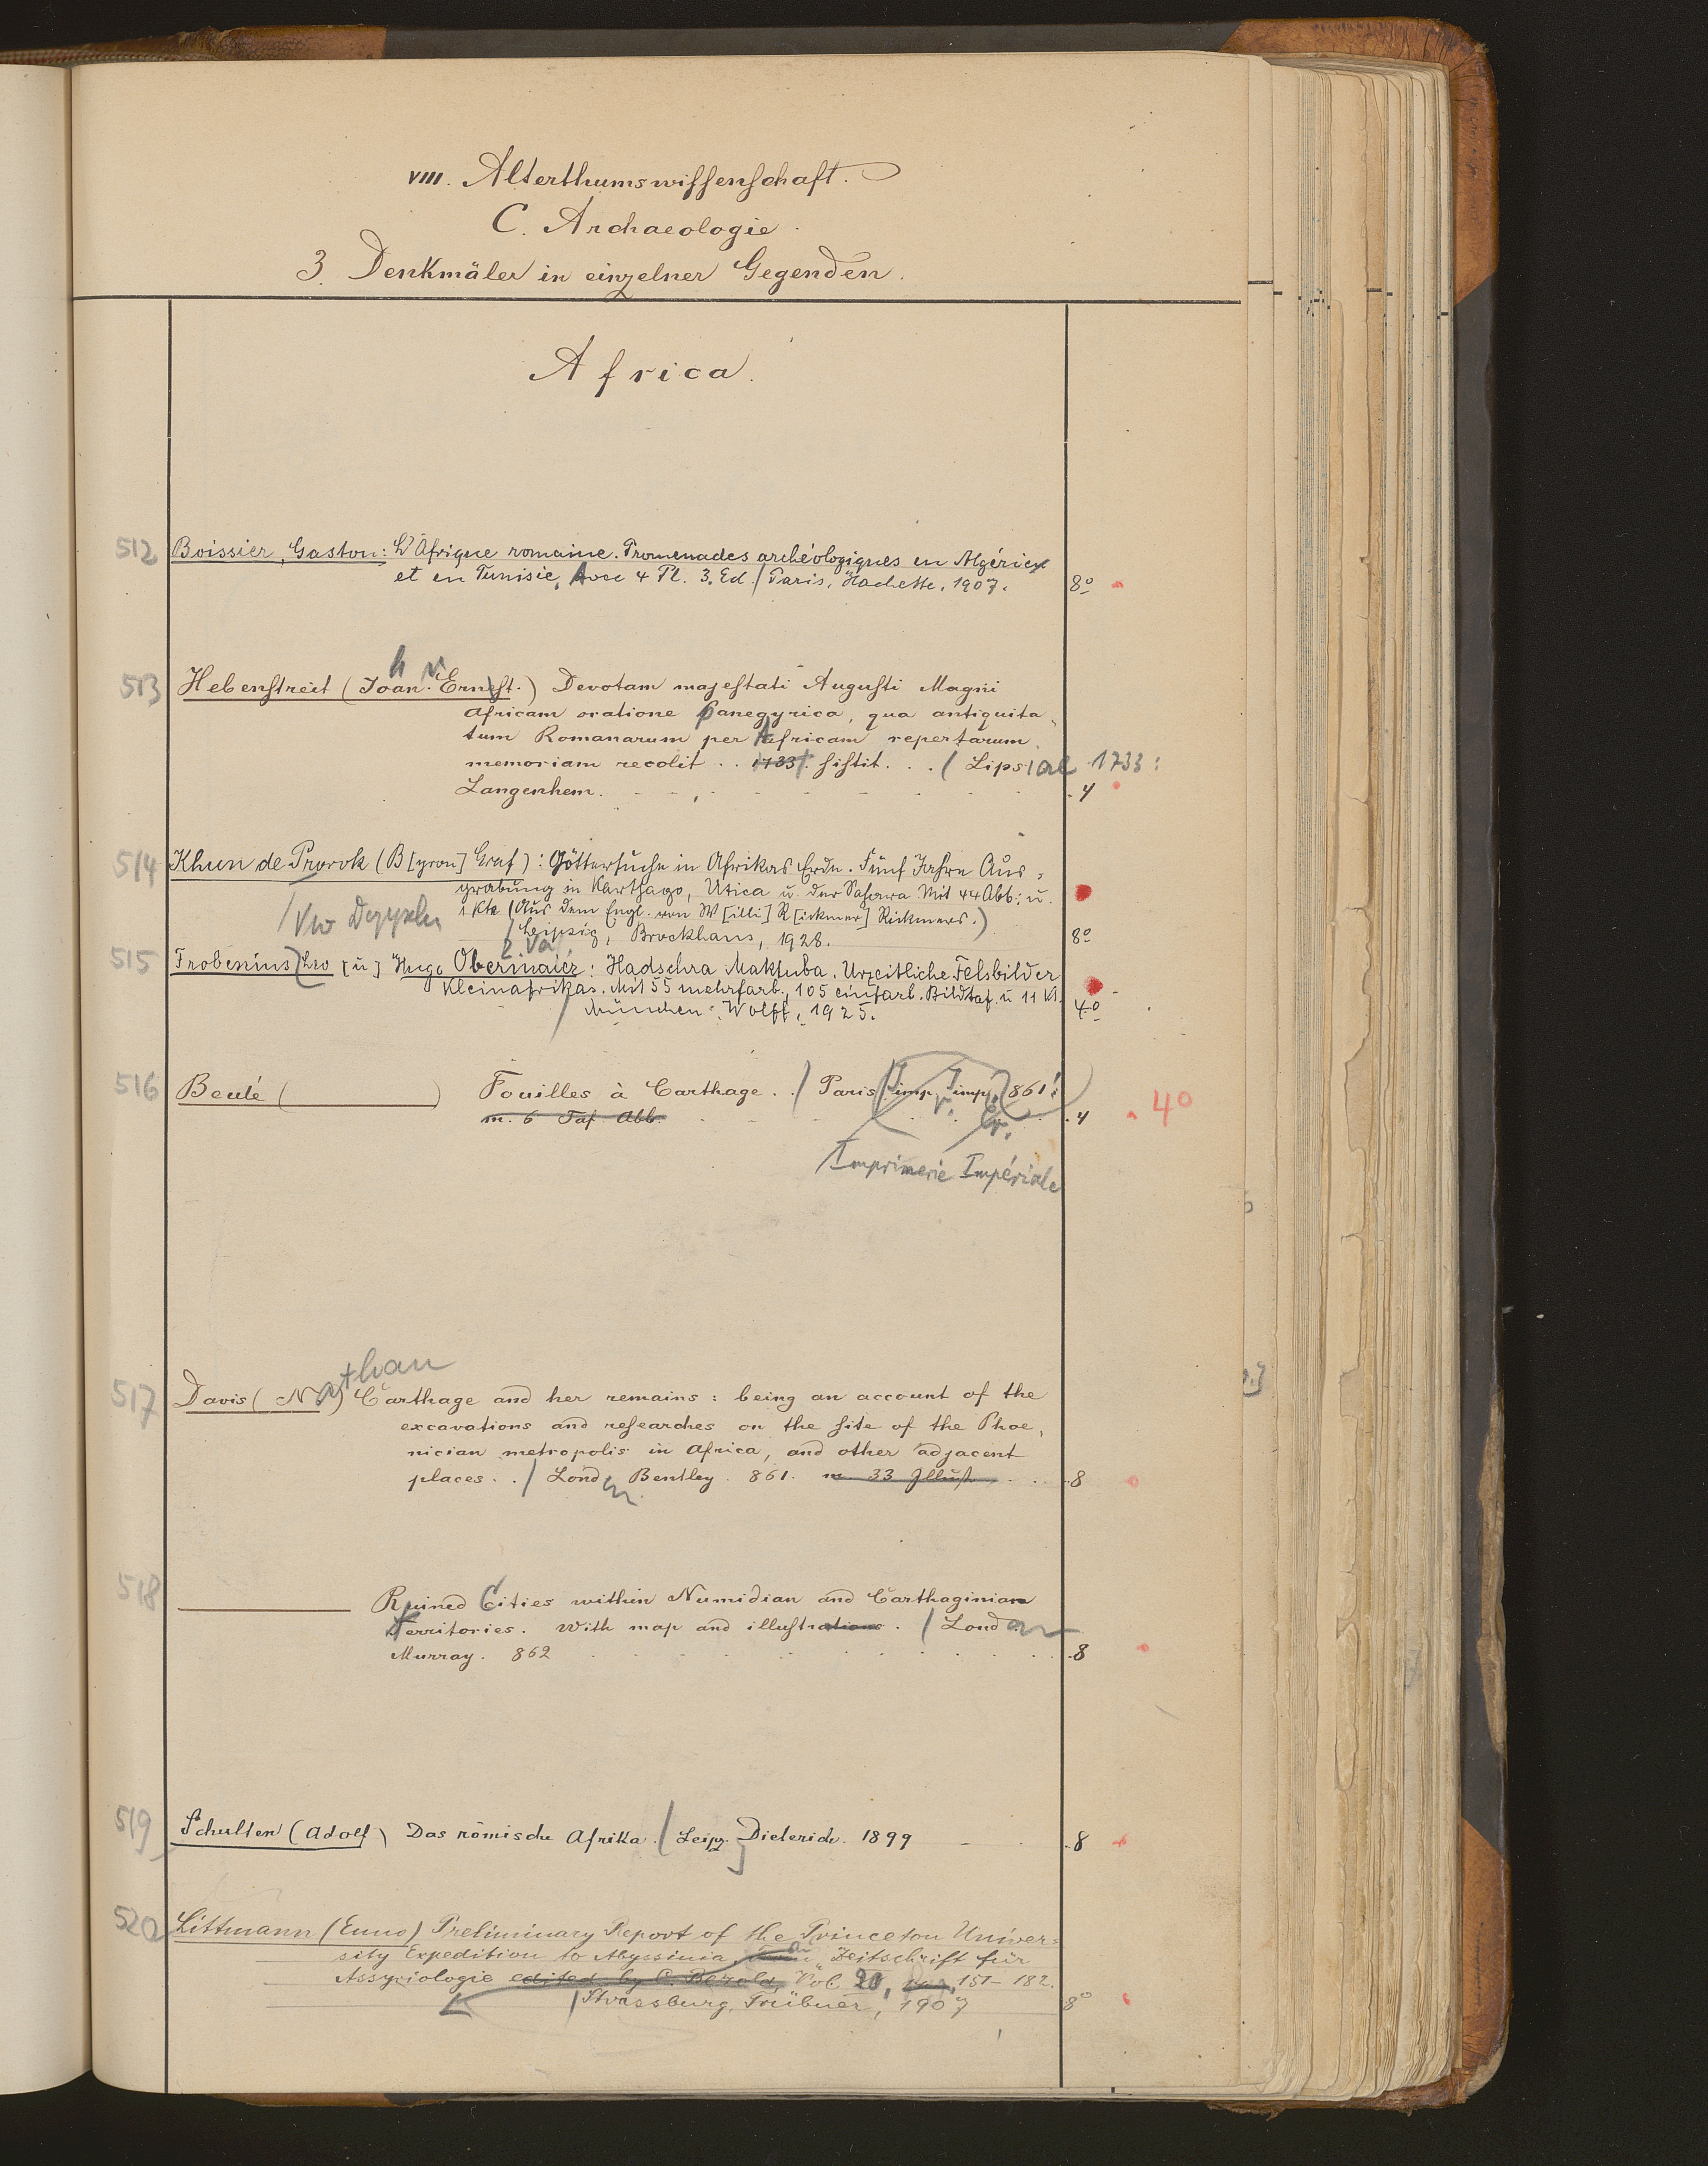 VIII. Alterthumswissenschaft.
C. Archaeologie.
3. Denkmäler in einzelner Gegenden.
Africa.
512 Boissier, Gaston: L'Afrique romaine. Promenades archéologiques en Algérie
et en Tunisie, Avec 4 Pl. 3. Ed. / Paris, Hachette, 1907. 8°
513 Hebenstreit (Joan. Ernest.) Devotam majestati Augusti Magni
Africam oratione panegyrica, qua antiquita-
tum Romanarum per Africam repertarum
memoriam recolit .. 1733. sistit. . . / Lipsiae 1733:
Langenhem. 4
514 Khun de Prorok (B[yron] Graf): Göttersuche in Afrikas Erde. Fünf Jahre Aus-
grabung in Karthago, Utica u. der Sahara. Mit 44 Abb. u.
1 Kte (Aus dem Engl. von W[illi] R[ickmer] Rickmers.)
/ Leipzig, Brockhaus, 1928. 8°
515 Frobenius, Leo [u] Hugo Obermaier: Hadschra Maktuba. Urzeitliche Felsbilder
Kleinafrikas. Mit 55 mehrfarb., 105 einfarb. Bildtaf. u 11 Kt.
/ München: Wolff, 1925. 4°
516 Beulé ( ) Fouilles à Carthage. . / Paris imp. imp. 861: 4 4°
m. 6 Taf. Abb.
Imprimerie Impériale
517 Davis (Nathan) Carthage and her remains: being an account of the
excavations and researches on the site of the Phoe-
nician metropolis in Africa, and other adjacent
places. . / London Bentley. 861. m. 33 Illust. 8
518 Ruined Cities within Numidian and Carthaginian
Territories. With map and illustrations. / London
Murray. 862 8
519 Schulten (Adolf) Das römische Afrika. / Leipz. Dieterich. 1899 8
520 Littmann (Enno) Preliminary Report of the Princeton Univer-
sity Expedition to Abyssinia. Zeitschrift für
Assyriologie edited by C. Bezold, Vol. 20, 151-182.
/ Strassburg, Trübner, 1907 8°